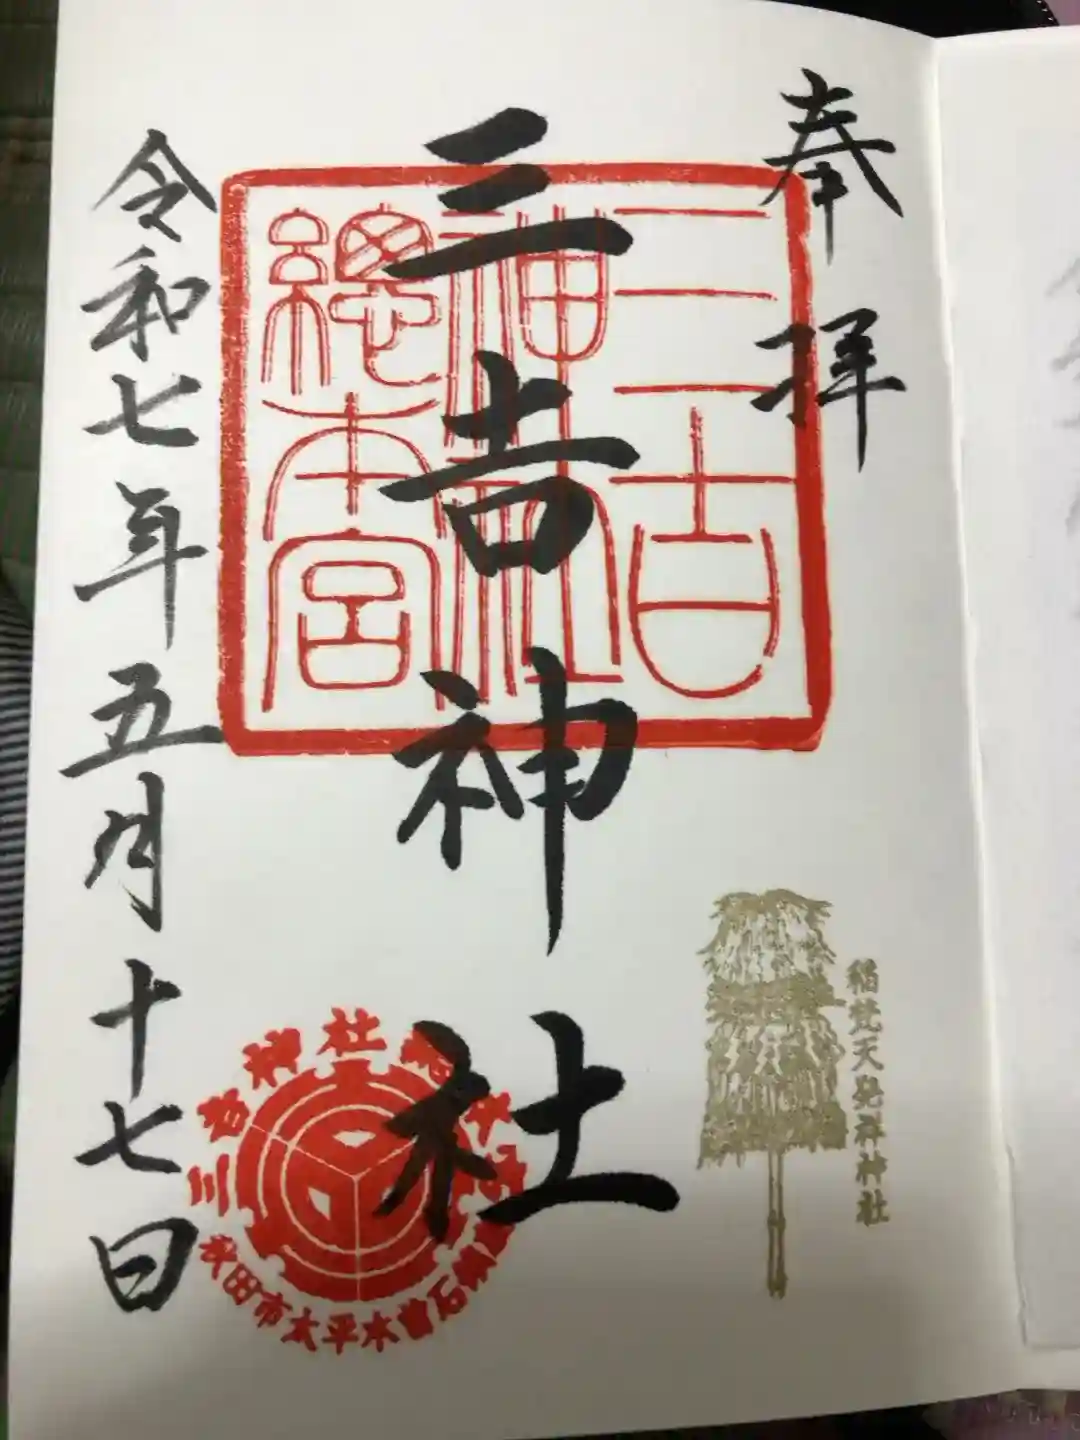 奉拝
三吉神社
令和七年五月十七日
三吉
神社
總本宮
稲梵天発祥神社
三吉神社総本宮
秋田市太平木曽石